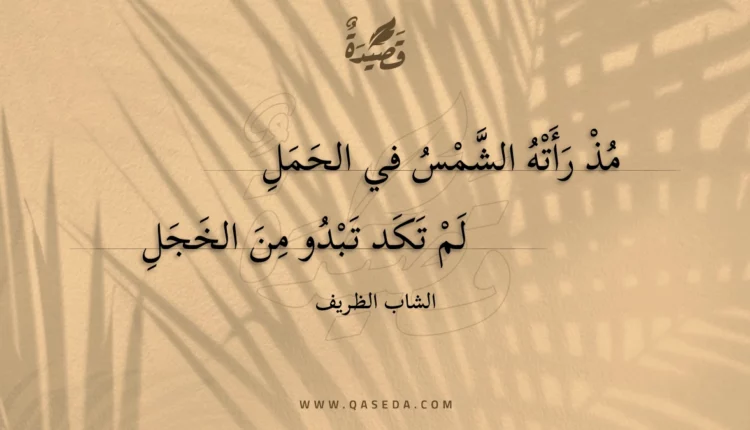 قَصِيْدَةٌ
مُذْ رَأَتْهُ الشَّمْسُ في الحَمَلِ
لَمْ تَكَد تَبْدُو مِنَ الخَجَلِ
الشاب الظريف
WWW.QASEDA.COM